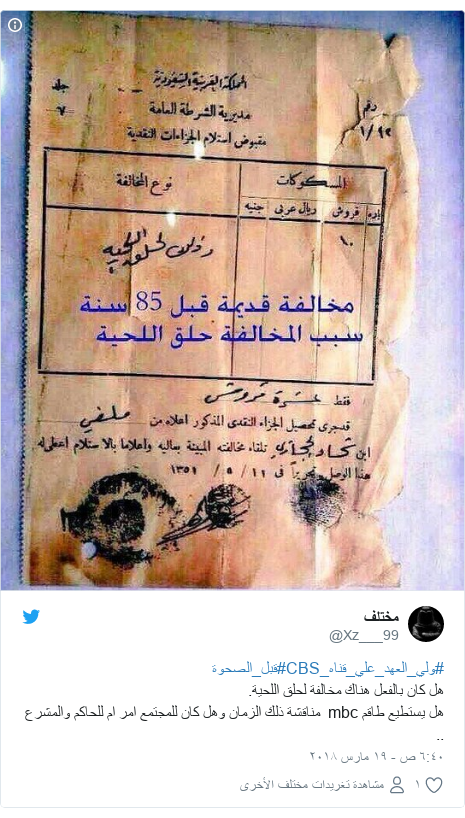 المملكة العربية السعودية
مديرية الشرطة العامة
مقبوض استلام الجزاءات النقدية
جلد
٧
رقم
١/٩٢
نوع المخالفة
المسكوكات
جنيه
ريال عربي
قروش
باره
١٠
وذلك لحلقه اللحية
مخالفة قديمة قبل 85 سنة
سبب المخالفة حلق اللحية
فقط عشرة قروش
قد جرى تحصيل الجزاء النقدي المذكور اعلاه من
ابن تلقاء مخالفته المبينة بعاليه واعلاما بالاستلام اعطى له
هذا الوصل تحريراً في ١١ / ٥ / ١٣٥١
مختلف
@Xz___99
#ولي_العهد_علي_قناه_CBS#قبل_الصحوة
هل كان بالفعل هناك مخالفة لحلق اللحية.
هل يستطيع طاقم mbc مناقشة ذلك الزمان وهل كان للمجتمع امر ام للحاكم والمشرع
..
٦:٤٠ ص - ١٩ مارس ٢٠١٨
١
مشاهدة تغريدات مختلف الأخرى